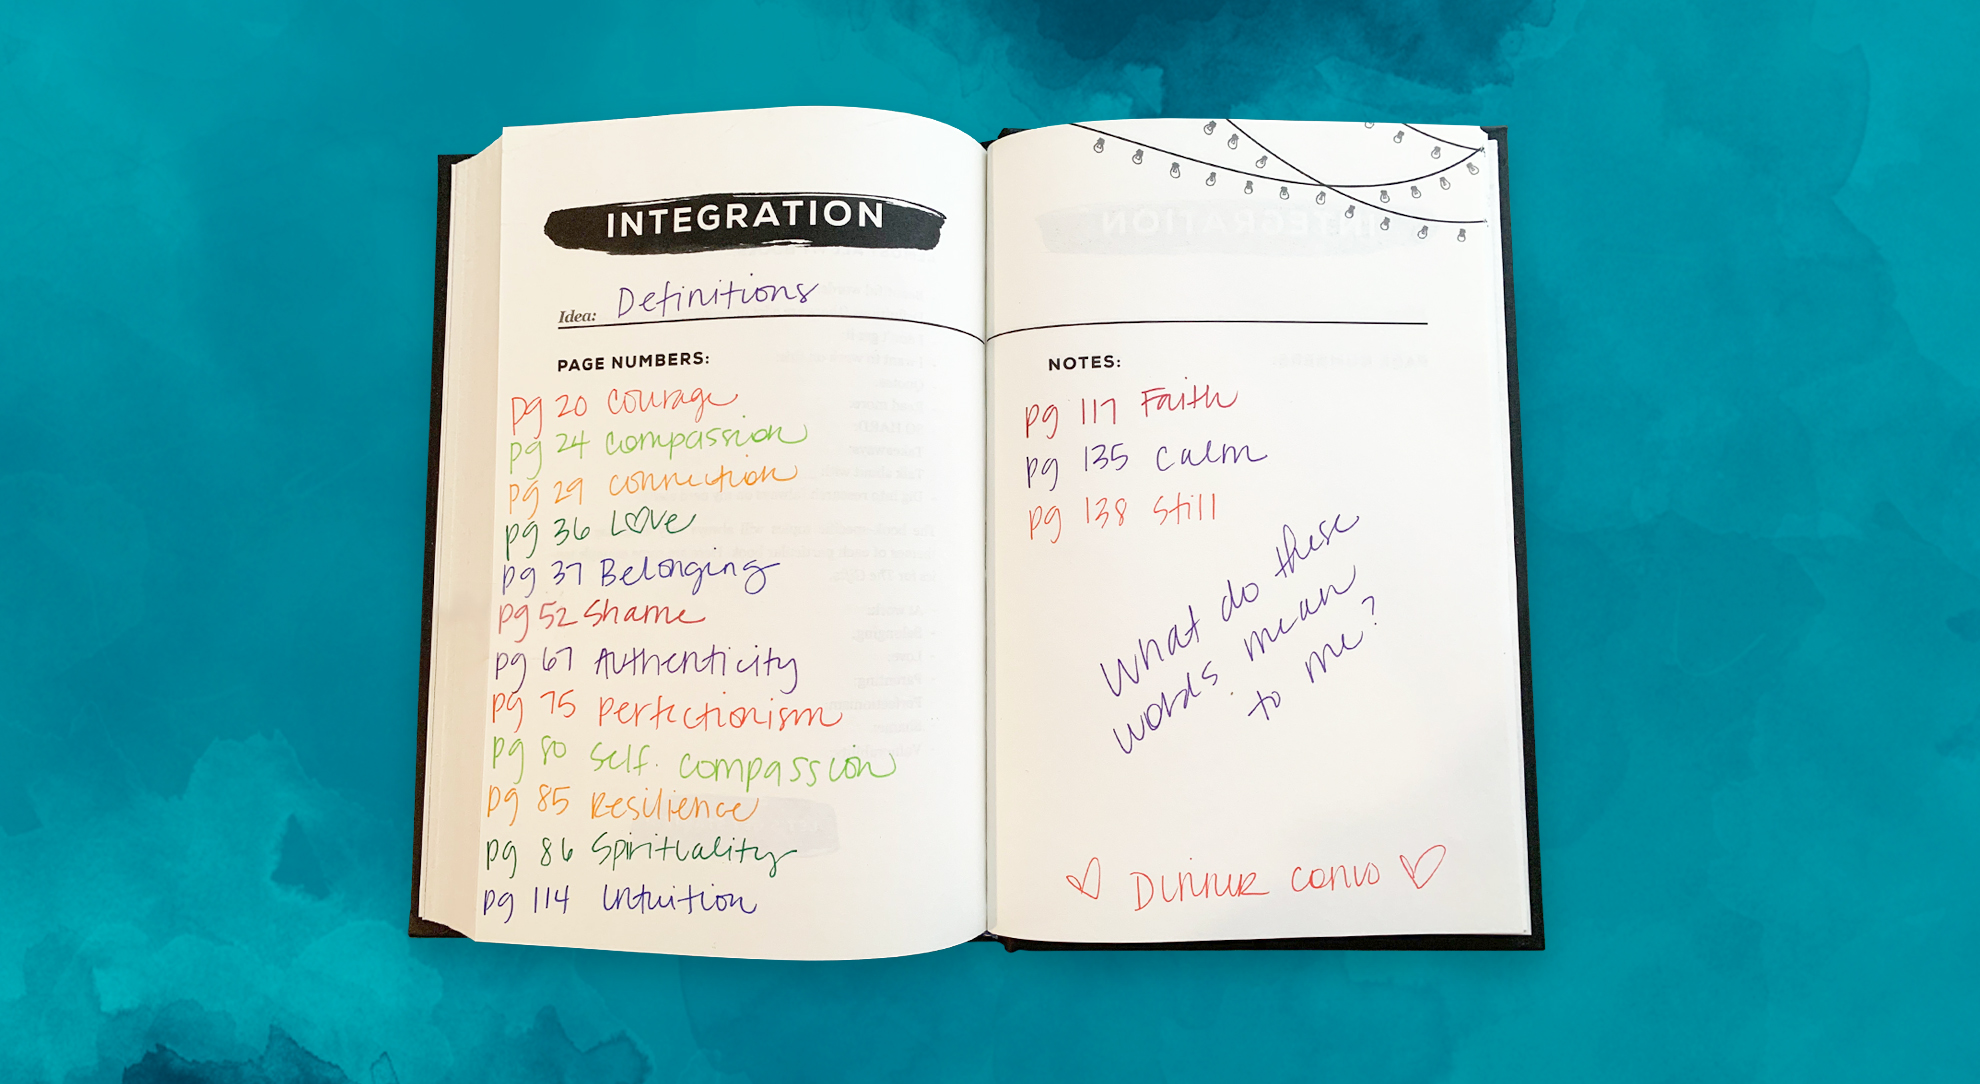 INTEGRATION
Idea: Definitions
PAGE NUMBERS:
pg 20 Courage
pg 24 Compassion
pg 29 Connection
pg 36 L♡ve
pg 37 Belonging
pg 52 Shame
pg 67 Authenticity
pg 75 Perfectionism
pg 80 Self-compassion
pg 85 Resilience
pg 86 Spirituality
pg 114 Intuition
NOTES:
pg 117 Faith
pg 135 Calm
pg 138 Still
What do these
words mean
to me?
♡ Dinner convo ♡